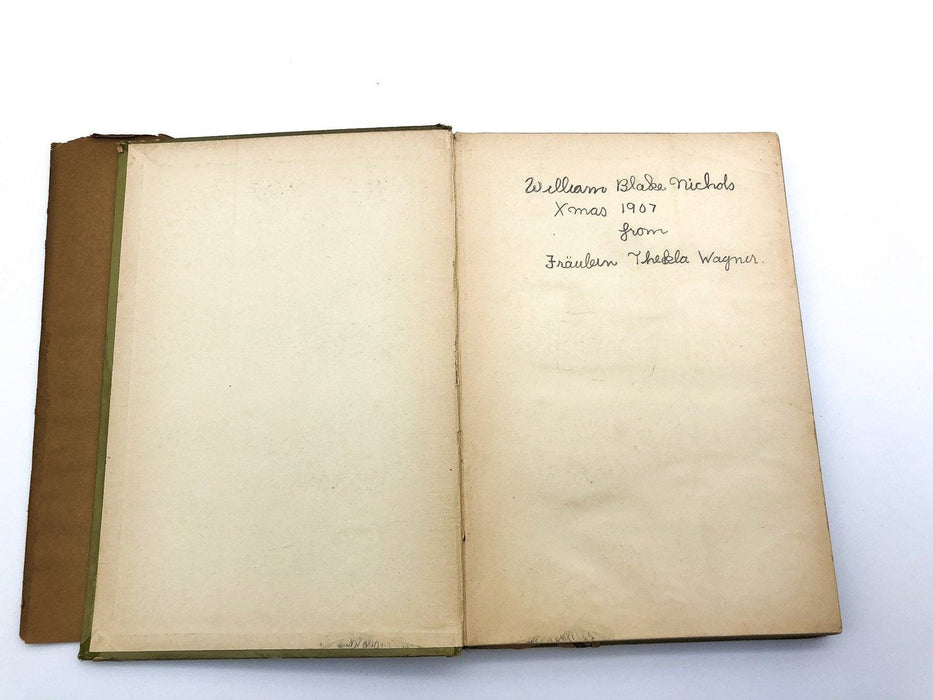 William Blake Nichols
Xmas 1907
from
Fräulein Thekla Wagner.